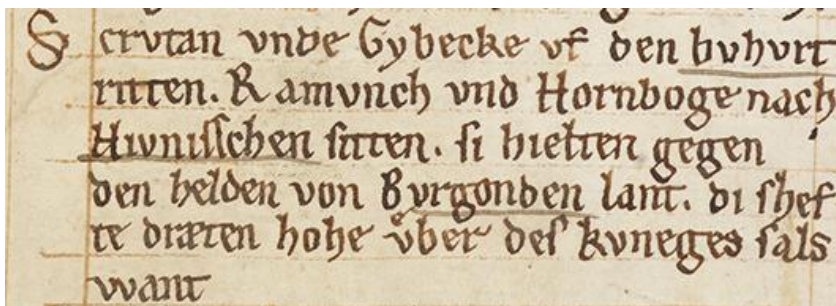 S crvtan vnde Gybecke vf den bvhvrt
ritten. Ramvnch vnd Hornboge nach
Hivnisschen sitten. si hielten gegen
den helden von Bvrgonden lant. di shef
te dræten hohe vͤber des kvneges sals
want